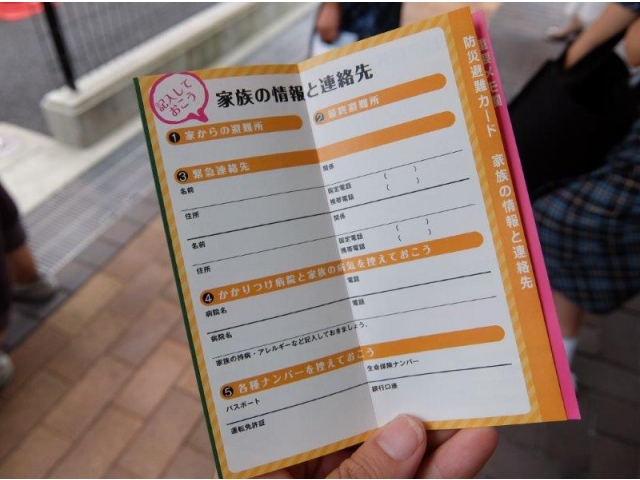 記入して
おこう
家族の情報と連絡先
1 家からの避難所
2 最終避難所
3 緊急連絡先
名前
関係
住所
固定電話 ( )
携帯電話 ( )
名前
関係
住所
固定電話 ( )
携帯電話 ( )
4 かかりつけ病院と家族の病気を控えておこう
病院名
電話
病院名
電話
家族の持病・アレルギーなど記入しておきましょう。
5 各種ナンバーを控えておこう
パスポート
生命保険ナンバー
運転免許証
銀行口座
防災避難カード 家族の情報と連絡先